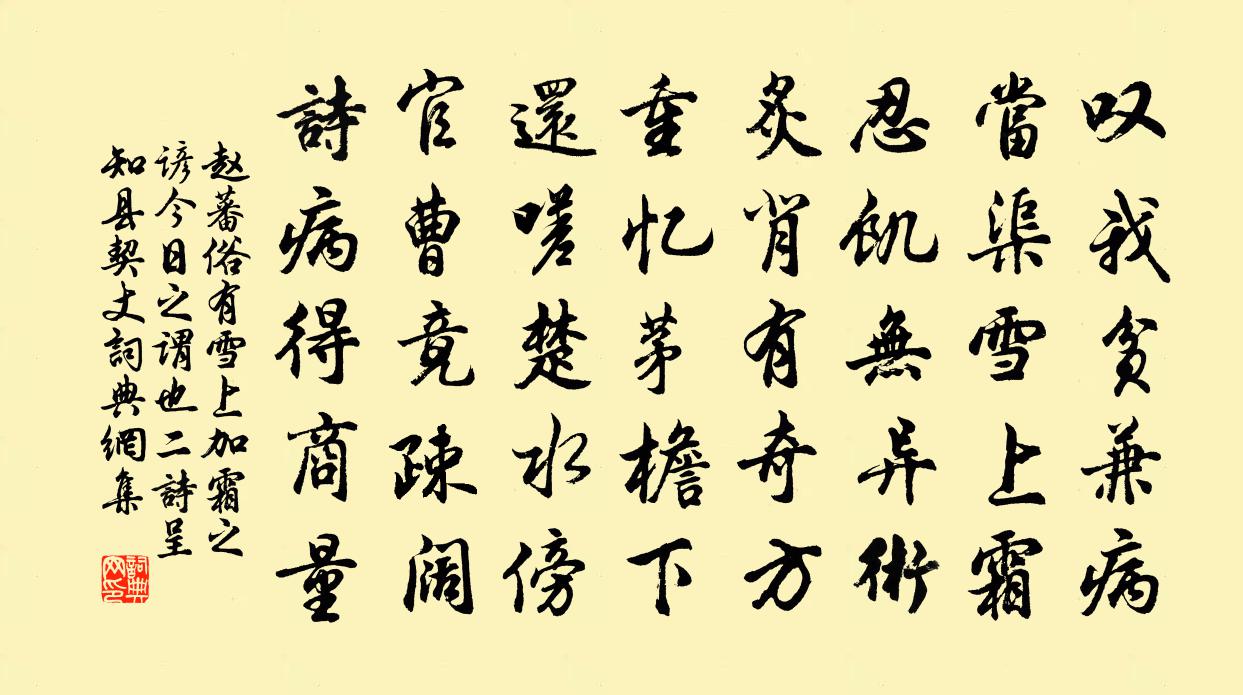 叹我贫兼病
當渠雪上霜
忍飢無异術
炙背有奇方
重忆茅檐下
還嗟楚水傍
官曹竟疎阔
詩病得商量
赵蕃俗有雪上加霜之
谚今日之谓也二詩呈
知县契丈詞典網集
詞典网印